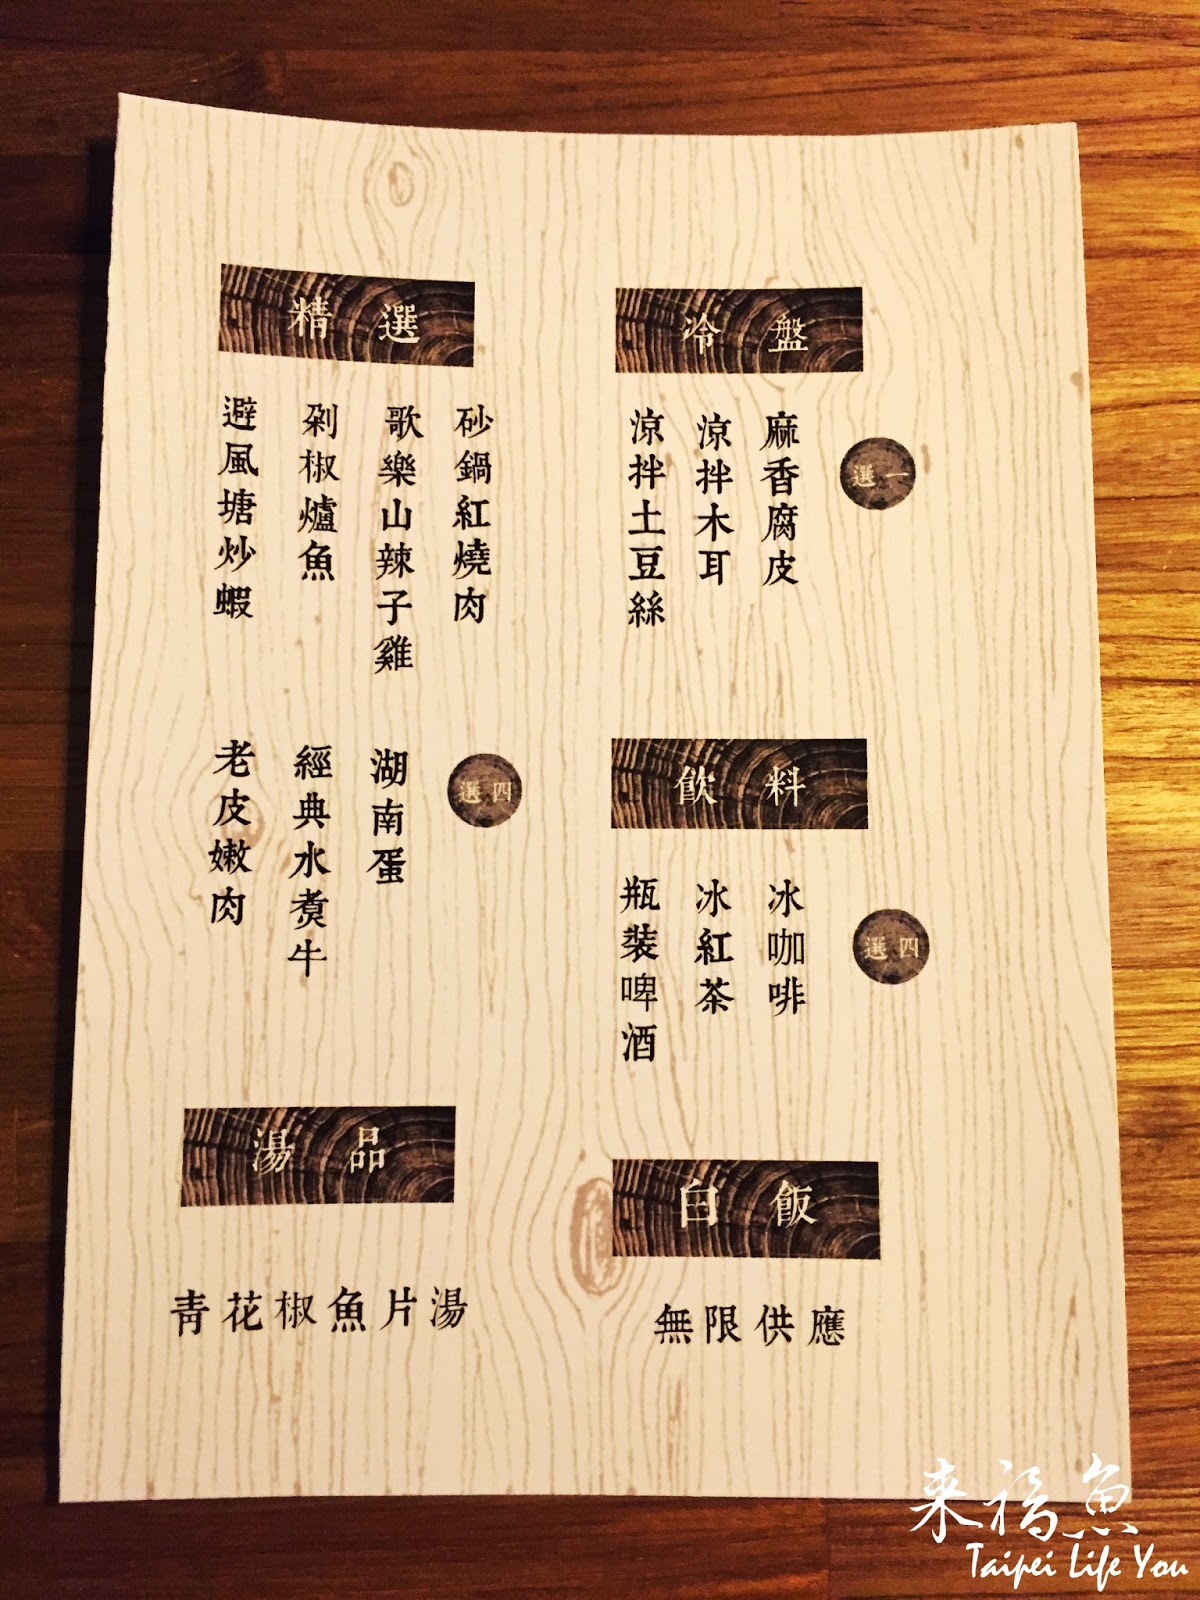 冷盤
選一
麻香腐皮
涼拌木耳
涼拌土豆絲
精選
砂鍋紅燒肉
歌樂山辣子雞
剁椒爐魚
避風塘炒蝦
選四
湖南蛋
經典水煑牛
老皮嫩肉
飲料
選四
冰咖啡
冰紅茶
瓶裝啤酒
湯品
青花椒魚片湯
白飯
無限供應
来福魚
Taipei Life You